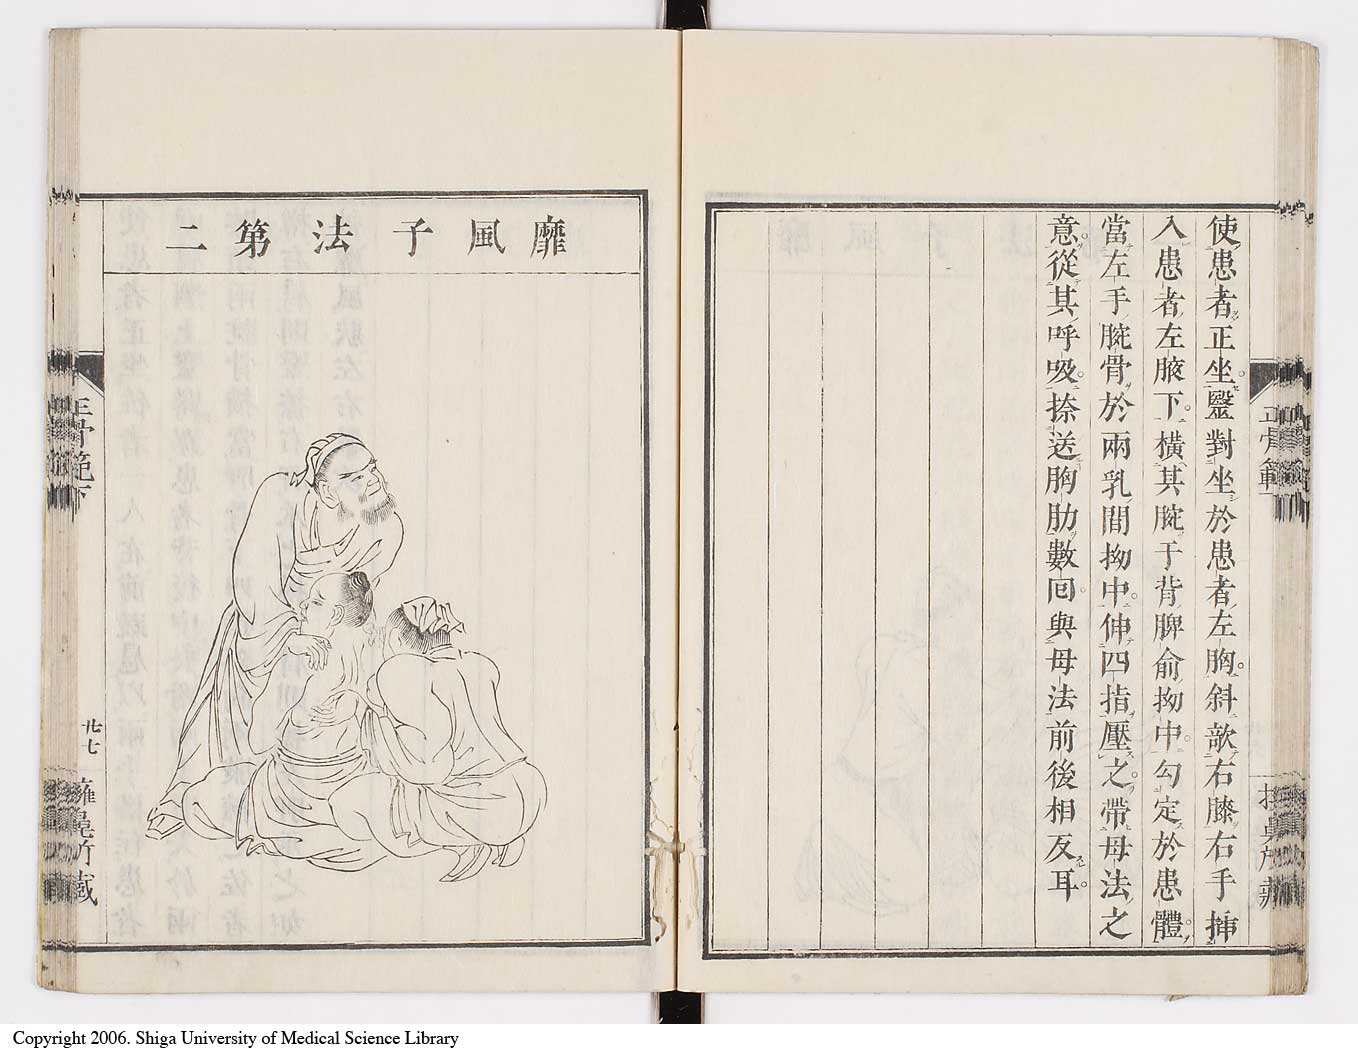 使患者正坐醫對坐於患者左胸斜欹右膝右手揷
入患者左腋下橫其腕于背脾俞拗中勾定於患體
當左手腕骨於兩乳間拗中伸四指壓之帶母法之
意從其呼吸捺送胸肋數回與母法前後相反耳
正骨範
靡風子法第二
正骨範下
廿七
Copyright 2006. Shiga University of Medical Science Library